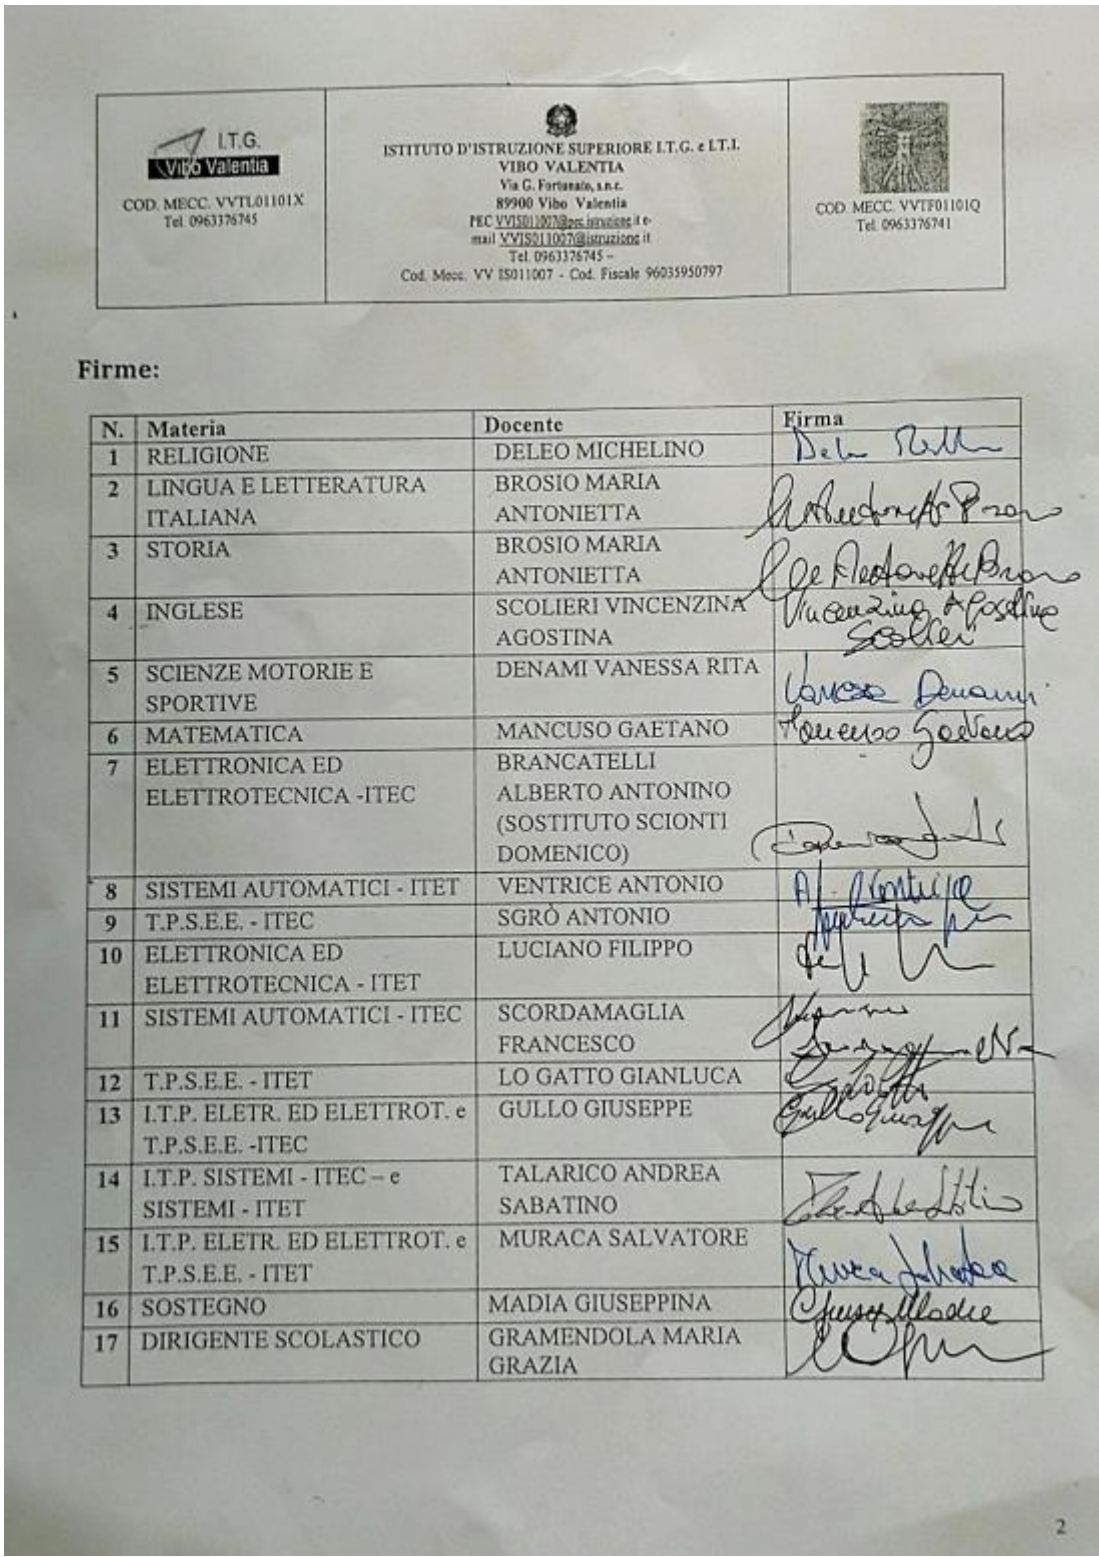 I.T.G.
Vibo Valentia
COD. MECC. VVTL01101X
Tel. 0963376745
ISTITUTO D'ISTRUZIONE SUPERIORE I.T.G. e I.T.I.
VIBO VALENTIA
Via G. Fortunato, s.n.c.
89900 Vibo Valentia
PEC VVIS011007@pec.istruzione.it e-
mail VVIS011007@istruzione.it
Tel. 0963376745 –
Cod. Mecc. VV IS011007 - Cod. Fiscale 96035950797
COD. MECC. VVTF01101Q
Tel. 0963376741
Firme:
N. Materia Docente Firma
1 RELIGIONE DELEO MICHELINO
2 LINGUA E LETTERATURA BROSIO MARIA
ITALIANA ANTONIETTA
3 STORIA BROSIO MARIA
ANTONIETTA
4 INGLESE SCOLIERI VINCENZINA Vincenzina Agostina
AGOSTINA Scolieri
5 SCIENZE MOTORIE E DENAMI VANESSA RITA
SPORTIVE Vanessa Denami
6 MATEMATICA MANCUSO GAETANO Mancuso Gaetano
7 ELETTRONICA ED BRANCATELLI
ELETTROTECNICA -ITEC ALBERTO ANTONINO
(SOSTITUTO SCIONTI
DOMENICO)
8 SISTEMI AUTOMATICI - ITET VENTRICE ANTONIO
9 T.P.S.E.E. - ITEC SGRÒ ANTONIO
10 ELETTRONICA ED LUCIANO FILIPPO
ELETTROTECNICA - ITET
11 SISTEMI AUTOMATICI - ITEC SCORDAMAGLIA
FRANCESCO
12 T.P.S.E.E. - ITET LO GATTO GIANLUCA
13 I.T.P. ELETR. ED ELETTROT. e GULLO GIUSEPPE Gullo Giuseppe
T.P.S.E.E. -ITEC
14 I.T.P. SISTEMI - ITEC – e TALARICO ANDREA
SISTEMI - ITET SABATINO
15 I.T.P. ELETR. ED ELETTROT. e MURACA SALVATORE
T.P.S.E.E. - ITET
16 SOSTEGNO MADIA GIUSEPPINA
17 DIRIGENTE SCOLASTICO GRAMENDOLA MARIA
GRAZIA
2